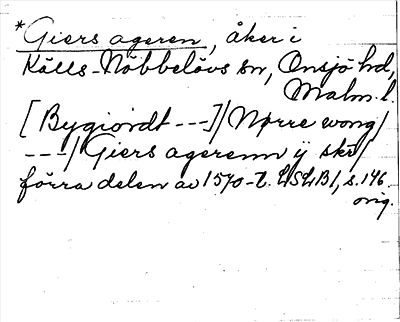 *Giers ageren, åker i
Källs-Nöbbelövs sn, Onsjö hd,
Malm. l.
[Bygiordt ---]/Nørre wong/
---/Giers agerenn ij skr/
förra delen av 1570-t. LSLB1, s. 146
orig.